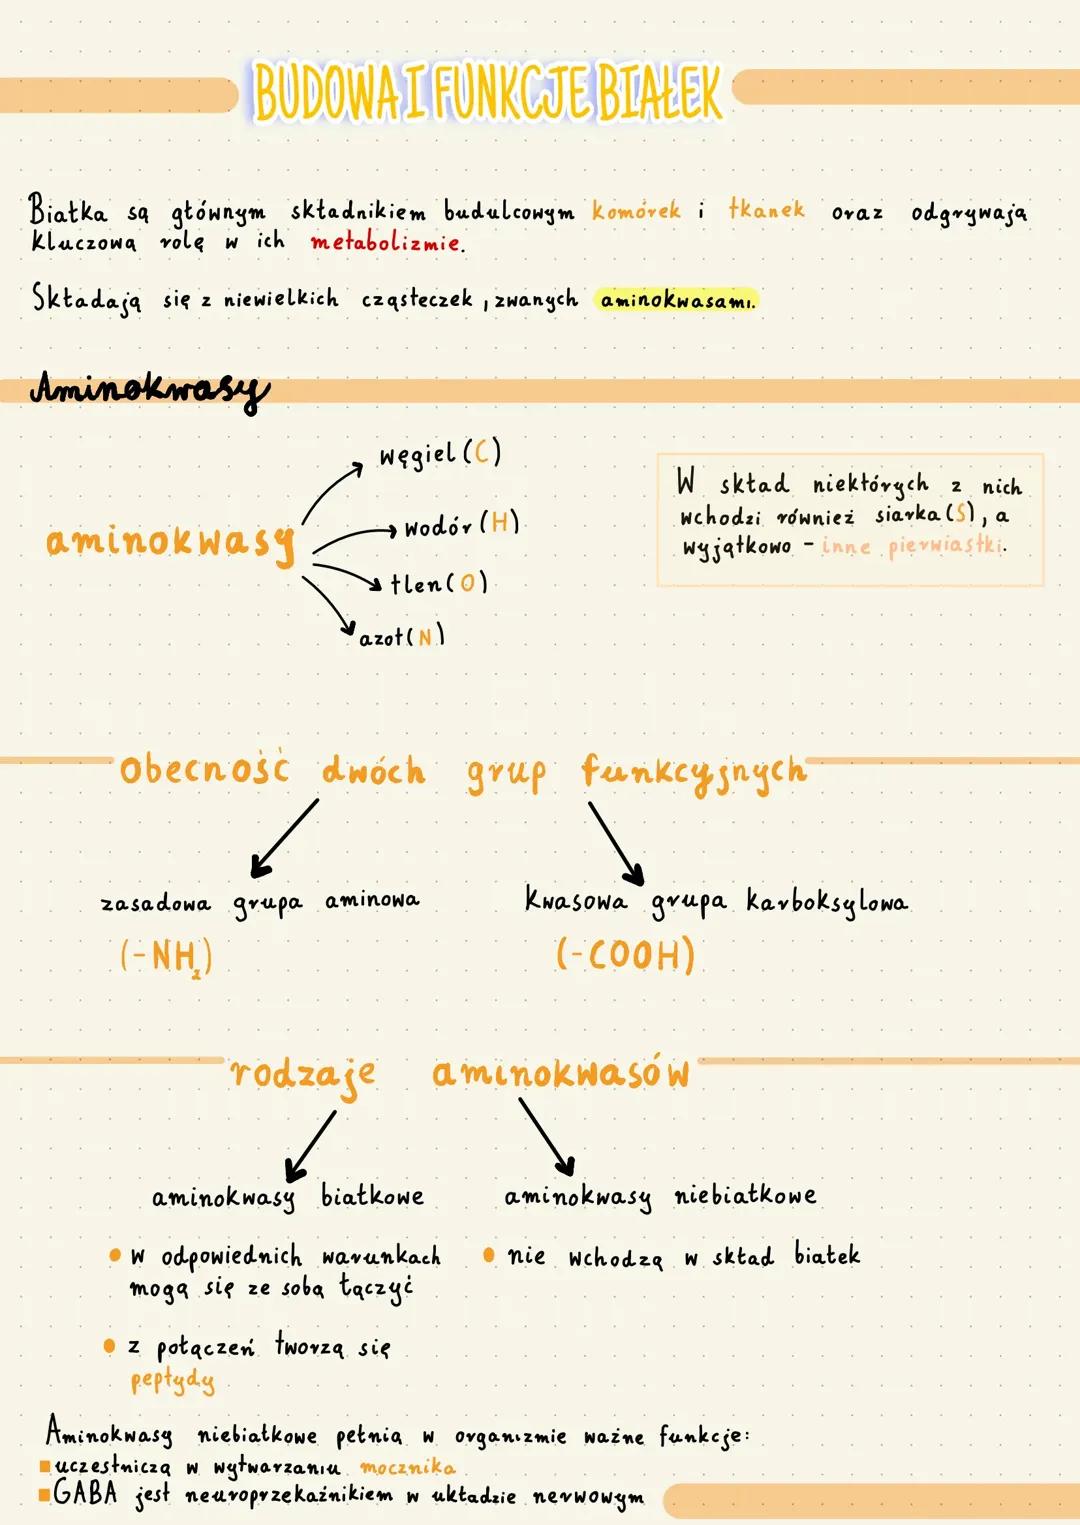 BUDOWA I FUNKCJE BIAŁEK
Białka są głównym składnikiem budulcowym komórek i tkanek oraz odgrywają
kluczową rolę w ich metabolizmie.
Składają się z niewielkich cząsteczek, zwanych aminokwasami.
Aminokwasy
aminokwasy
węgiel (C)
wodór (H)
tlen (O)
azot (N)
W skład niektórych z nich
wchodzi również siarka (S), a
wyjątkowo - inne pierwiastki.
Obecność dwóch grup funkcyjnych
zasadowa grupa aminowa
(-NH₂)
kwasowa grupa karboksylowa
(-COOH)
rodzaje aminokwasów
aminokwasy białkowe
• w odpowiednich warunkach
mogą się ze sobą łączyć
• z połączeń tworzą się
peptydy
aminokwasy niebiałkowe
• nie wchodzą w skład białek
Aminokwasy niebiałkowe pełnią w organizmie ważne funkcje:
▪ uczestniczą w wytwarzaniu mocznika
▪ GABA jest neuroprzekaźnikiem w układzie nerwowym